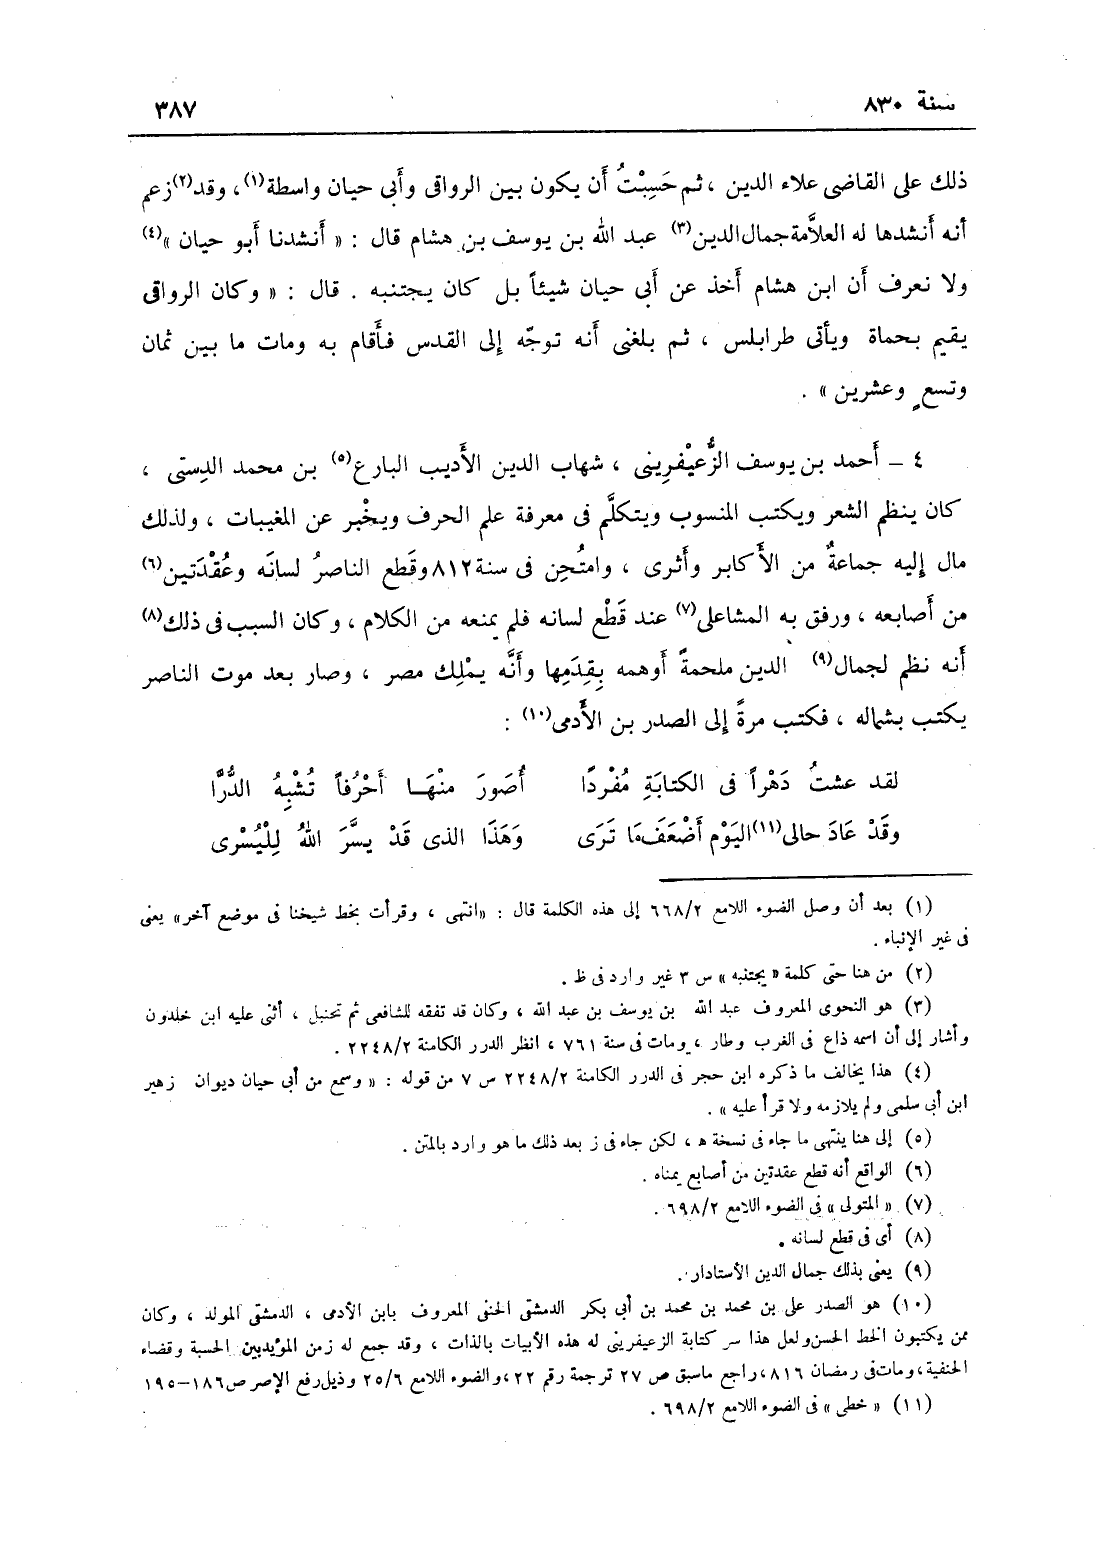 سنة ٨٣٠ ٣٨٧
ذلك على القاضى علاء الدين ، ثم حَسِبْتُ أَن يكون بين الرواقى وأَبى حيان واسطة(١) ، وقد(٢) زعم
أنه أَنشدها له العلاَّمة جمال الدين(٣) عبد الله بن يوسف بن هشام قال : « أَنشدنا أَبو حيان »(٤)
ولا نعرف أَن ابن هشام أَخذ عن أَبى حيان شيئاً بل كان يجتنبه . قال : « وكان الرواقى
يقيم بحماة ويأتى طرابلس ، ثم بلغنى أَنه توجّه إلى القدس فأَقام به ومات ما بين ثمان
وتسعٍ وعشرين » .
٤ – أَحمد بن يوسف الزُّعيْفرِينى ، شهاب الدين الأَديب البارع(٥) بن محمد الدِستى ،
كان ينظم الشعر ويكتب المنسوب ويتكلَّم فى معرفة علم الحرف ويخْبر عن المغيبات ، ولذلك
مال إليه جماعةٌ من الأَكابر وأَثرى ، وامتُحِن فى سنة ٨١٢ وقَطع الناصرُ لسانَه وعُقْدَتين(٦)
من أَصابعه ، ورفق به المشاعلى(٧) عند قَطْع لسانه فلم يمنعه من الكلام ، وكان السبب فى ذلك(٨)
أَنه نظم لجمال(٩) الدين ملحمةً أَوهمه بِقِدَمِها وأَنَّه يمْلِك مصر ، وصار بعد موت الناصر
يكتب بشماله ، فكتب مرةً إلى الصدر بن الأَدمى(١٠) :
لقد عشتُ دَهْراً فى الكتابَةِ مُفْردًا أُصَورَ منْهَـا أَحْرُفاً تُشْبِهُ الدُّرَّا
وقَدْ عَادَ حالى(١١) اليَوْم أَضْعَفَ مَا تَرَى وَهَذَا الذى قَدْ يسَّرَ اللهُ لِلْيُسْرى
(١) بعد أن وصل الضوء اللامع ٦٦٨/٢ إلى هذه الكلمة قال : «انتهى ، وقرأت بخط شيخنا فى موضع آخر» يعنى
فى غير الإنباء .
(٢) من هنا حتى كلمة « يجتنبه » س ٣ غير وارد فى ظ .
(٣) هو النحوى المعروف عبد الله بن يوسف بن عبد الله ، وكان قد تفقه للشافعى ثم تحنبل ، أثنى عليه ابن خلدون
وأشار إلى أن اسمه ذاع فى الغرب وطار ، ومات فى سنة ٧٦١ ، انظر الدرر الكامنة ٢٢٤٨/٢ .
(٤) هذا يخالف ما ذكره ابن حجر فى الدرر الكامنة ٢٢٤٨/٢ س ٧ من قوله : « وسمع من أبى حيان ديوان زهير
ابن أبى سلمى ولم يلازمه ولا قرأ عليه » .
(٥) إلى هنا ينتهى ما جاء فى نسخة ه ، لكن جاء فى ز بعد ذلك ما هو وارد بالمتن .
(٦) الواقع أنه قطع عقدتين من أصابع يمناه .
(٧) « المتولى » فى الضوء اللامع ٦٩٨/٢ .
(٨) أى فى قطع لسانه .
(٩) يعنى بذلك جمال الدين الأستادار .
(١٠) هو الصدر على بن محمد بن محمد بن أبى بكر الدمشقى الحنفى المعروف بابن الأدمى ، الدمشقى المولد ، وكان
ممن يكتبون الخط الحسن ولعل هذا سر كتابة الزعيفرينى له هذه الأبيات بالذات ، وقد جمع له زمن المؤيديين الحسبة وقضاء
الحنفية ، ومات فى رمضان ٨١٦ ، راجع ماسبق ص ٢٧ ترجمة رقم ٢٢ ، والضوء اللامع ٢٥/٦ وذيل رفع الإصر ص ١٨٦–١٩٥
(١١) « خطى » فى الضوء اللامع ٦٩٨/٢ .